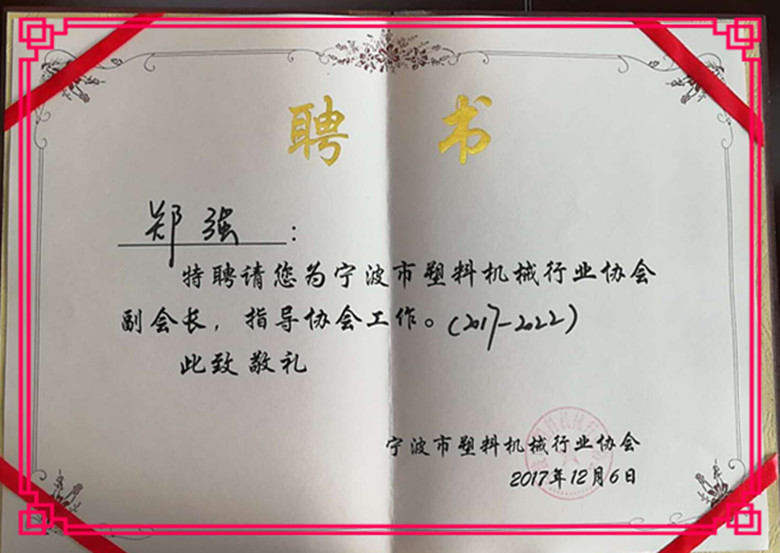 聘 书
郑强：
特聘请您为宁波市塑料机械行业协会
副会长，指导协会工作。(2017-2022)
此致敬礼
宁波市塑料机械行业协会
2017年12月6日